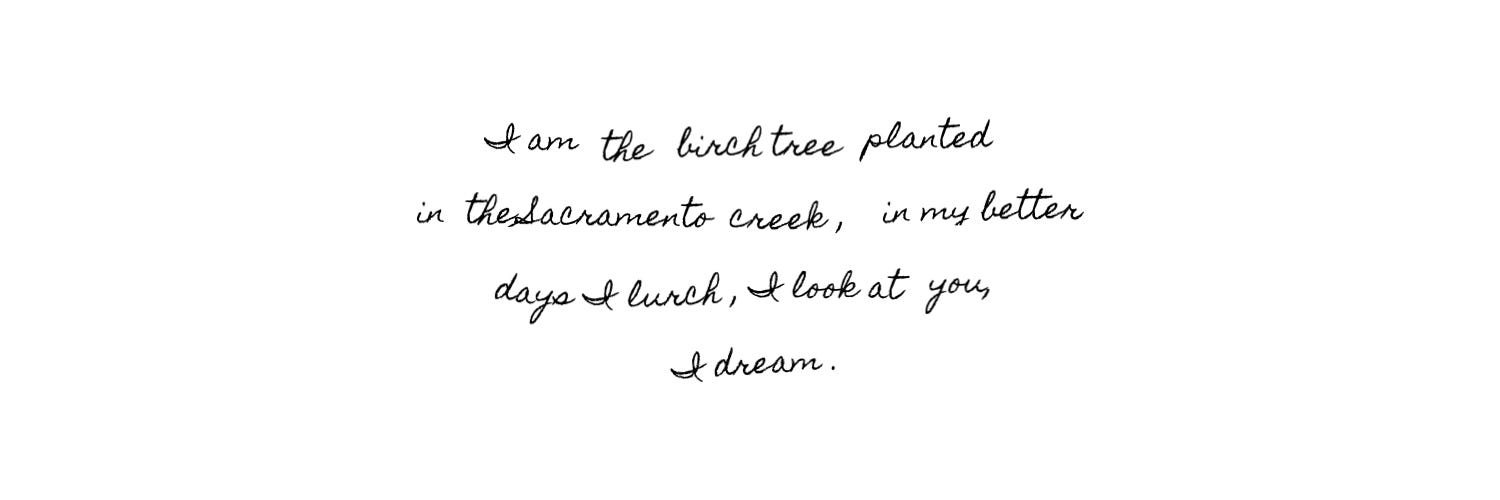 I am the birch tree planted
in the Sacramento creek, in my better
days I lurch, I look at you,
I dream.